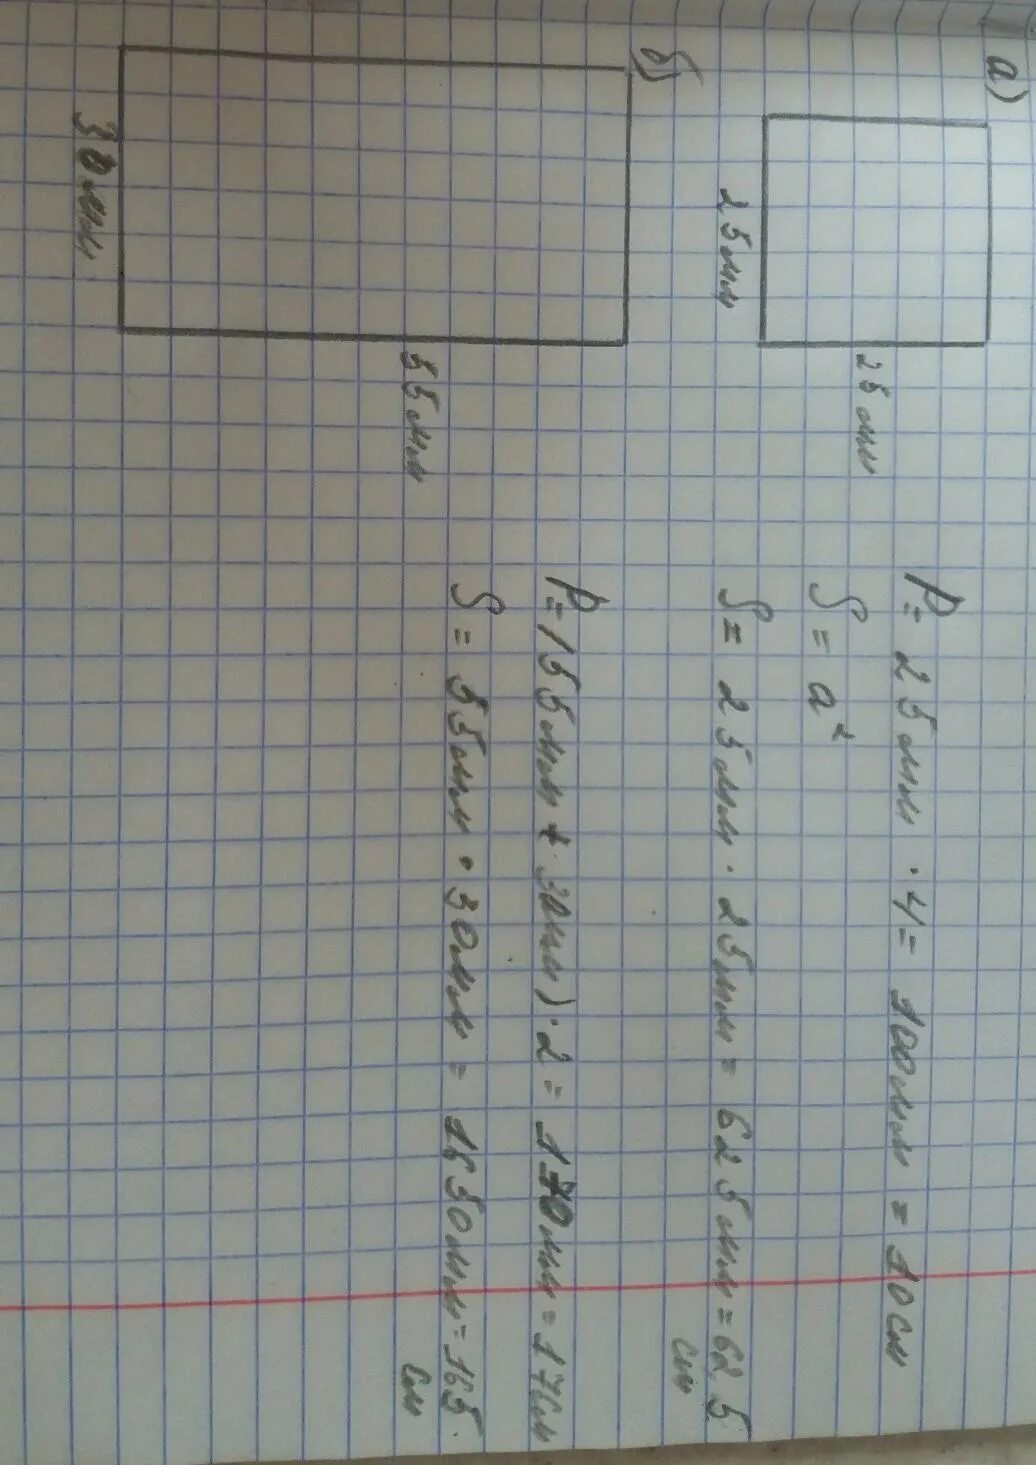 а)
25 мм
25 мм
P = 25 мм · 4 = 100 мм = 10 см
S = a²
S = 25 мм · 25 мм = 625 мм = 62 5
см
б)
55 мм
30 мм
P = (55 мм + 30 мм) · 2 = 170 мм = 17 см
S = 55 мм · 30 мм = 1650 мм = 165
см